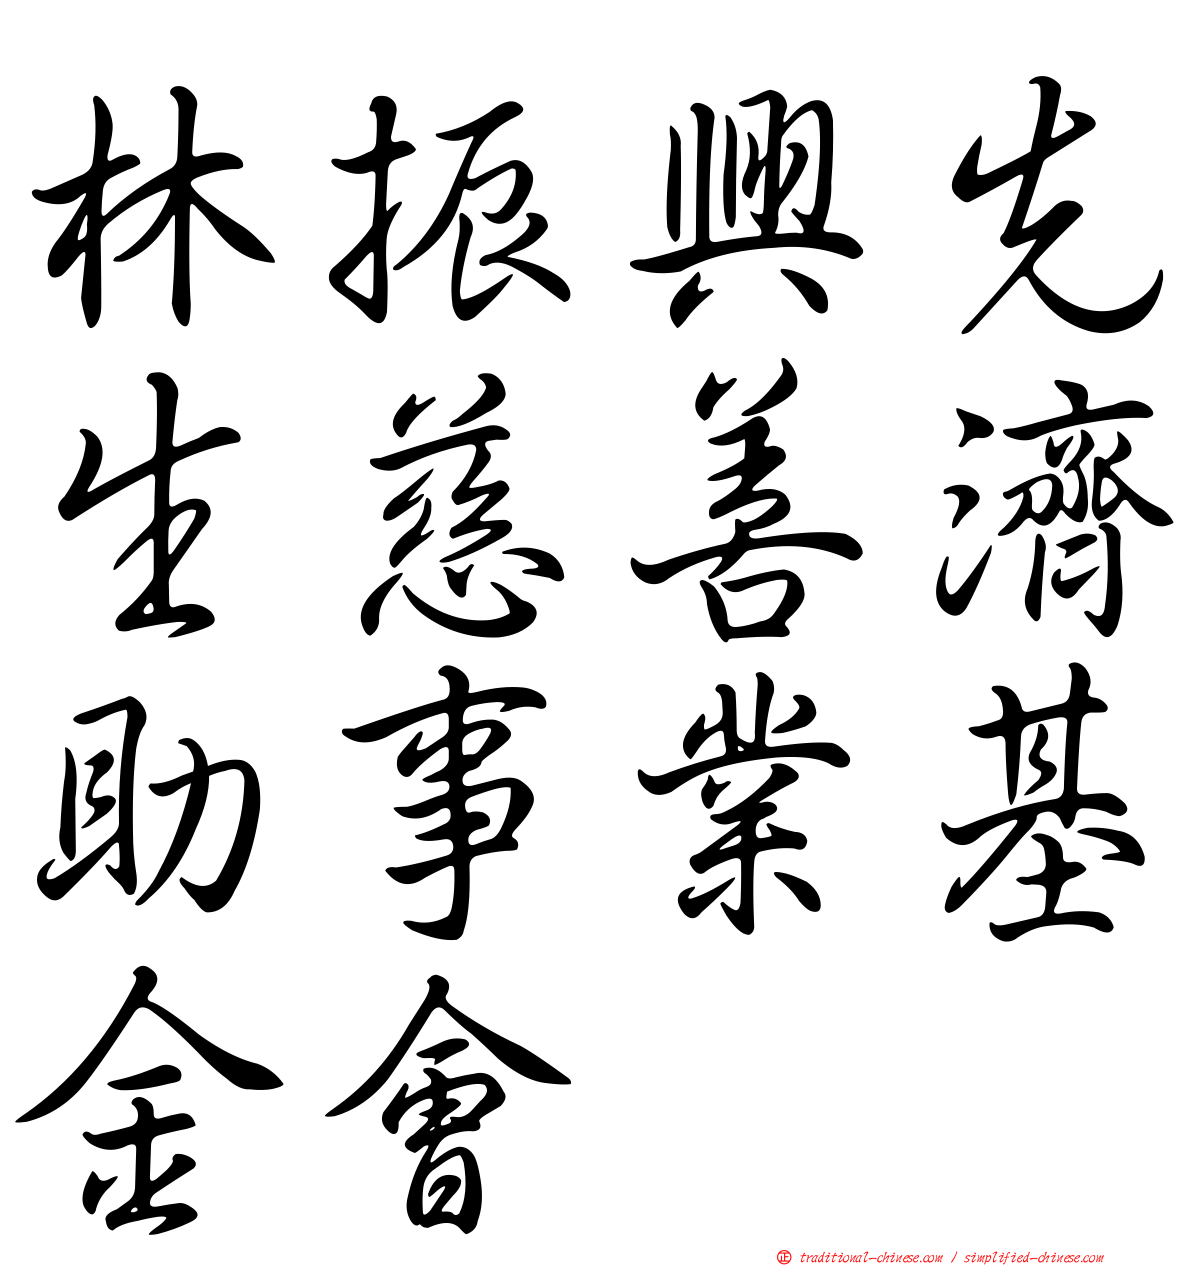 林振興先
生慈善濟
助事業基
金會
正 traditional-chinese.com / simplified-chinese.com